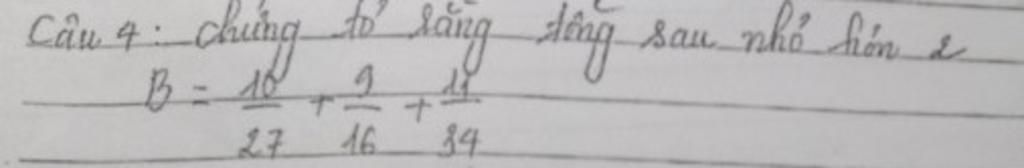 Câu 4: chứng tỏ rằng tổng sau nhỏ hơn 2
B = 10/27 + 9/16 + 11/34